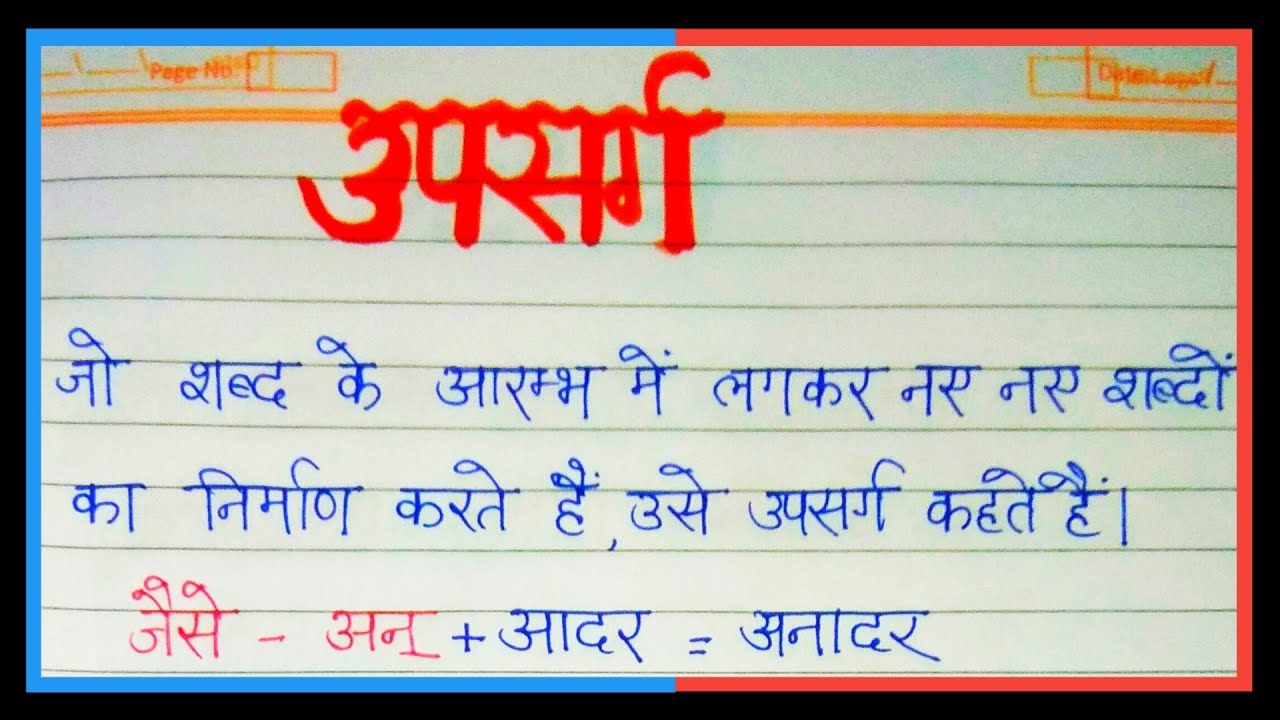 Page No.
उपसर्ग
जो शब्द के आरम्भ में लगकर नए नए शब्दों
का निर्माण करते हैं, उसे उपसर्ग कहते हैं।
जैसे - अन् + आदर = अनादर